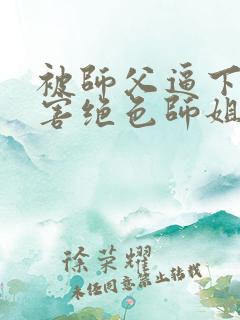 被師父逼下
害絕色師姐
徐榮耀
未经同意禁止转载